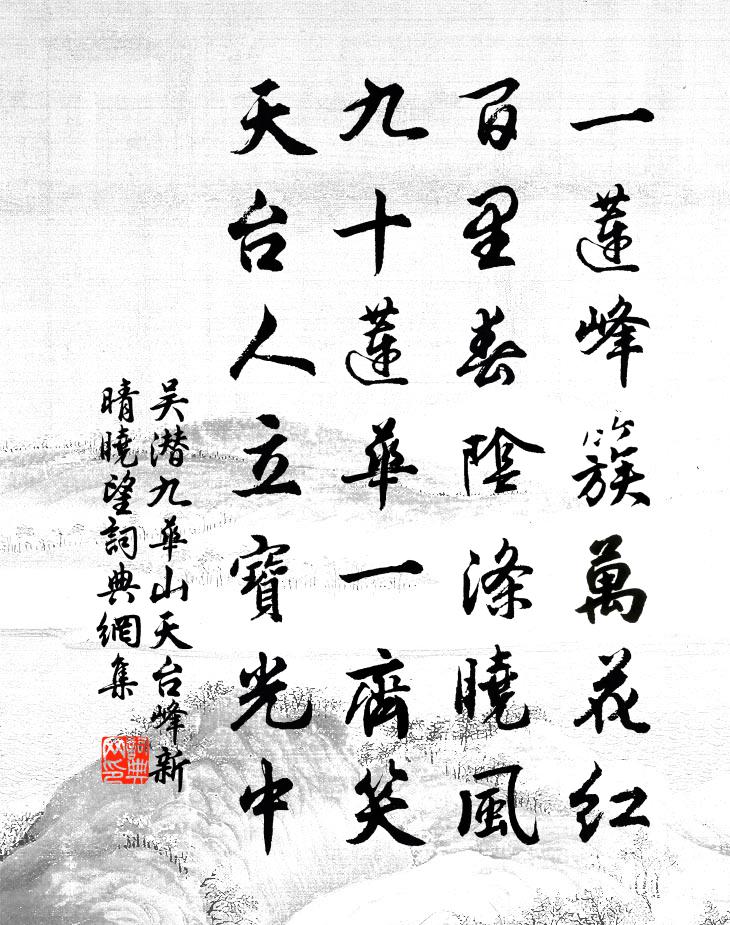 一蓮峰簇萬花紅
百里春陰滌曉風
九十蓮華一齊笑
天台人立寶光中
吴潜九華山天台峰新
晴曉望詞典網集